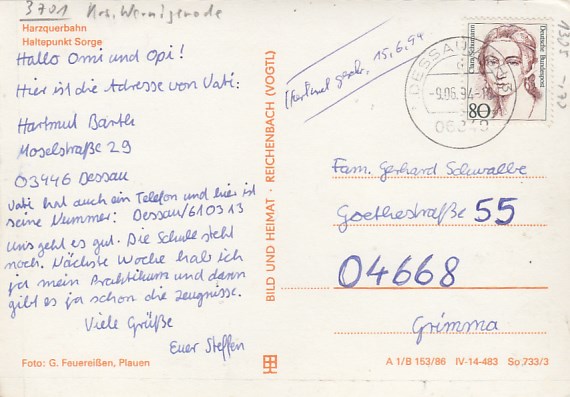 3701 Krs. Wernigerode
Harzquerbahn
Haltepunkt Sorge
Hallo Omi und Opi!
Hier ist die Adresse von Vati:
Hartmut Barth
Moselstraße 29
03446 Dessau
Vati hat auch ein Telefon und hier ist
seine Nummer: Dessau/610313
Uns geht es gut. Die Schule steht
noch. Nächste Woche hab ich
ja mein Praktikum und dann
gibt es ja schon die Zeugnisse.
Viele Grüße
Euer Steffen
Foto: G. Feuereißen, Plauen
BILD UND HEIMAT · REICHENBACH (VOGTL)
15.6.94
DESSAU
-9.06.94-18
06849
Clara Schumann
Deutsche Bundespost
80
Fam. Gerhard Schwalbe
Goethestraße 55
04668
Grimma
A 1/B 153/86 IV-14-483 So 733/3